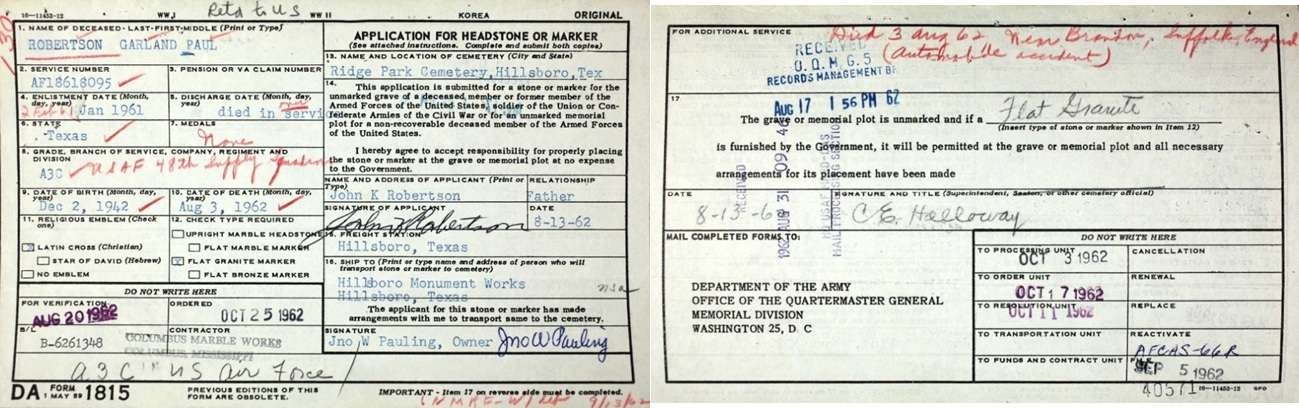 16—11453-12
WW I
Retd to US
WW II
KOREA
ORIGINAL
1. NAME OF DECEASED-LAST-FIRST-MIDDLE (Print or Type)
ROBERTSON GARLAND PAUL
2. SERVICE NUMBER
AF18618095
3. PENSION OR VA CLAIM NUMBER
4. ENLISTMENT DATE (Month, day, year)
2 Feb 61 Jan 1961
5. DISCHARGE DATE (Month, day, year)
died in service
6. STATE
Texas
7. MEDALS
None
8. GRADE, BRANCH OF SERVICE, COMPANY, REGIMENT AND DIVISION
A3C USAF 48th Supply Squadron
9. DATE OF BIRTH (Month, day, year)
Dec 2, 1942
10. DATE OF DEATH (Month, day, year)
Aug 3, 1962
11. RELIGIOUS EMBLEM (Check one)
LATIN CROSS (Christian)
STAR OF DAVID (Hebrew)
NO EMBLEM
12. CHECK TYPE REQUIRED
UPRIGHT MARBLE HEADSTONE
FLAT MARBLE MARKER
FLAT GRANITE MARKER
FLAT BRONZE MARKER
DO NOT WRITE HERE
FOR VERIFICATION
AUG 20 1962
ORDERED
OCT 25 1962
B/L
B-6261348
CONTRACTOR
COLUMBUS MARBLE WORKS
COLUMBUS, MISSISSIPPI
A3C US Air Force
APPLICATION FOR HEADSTONE OR MARKER
(See attached instructions. Complete and submit both copies)
13. NAME AND LOCATION OF CEMETERY (City and State)
Ridge Park Cemetery, Hillsboro, Tex
14. This application is submitted for a stone or marker for the
unmarked grave of a deceased member or former member of the
Armed Forces of the United States, soldier of the Union or Con-
federate Armies of the Civil War or for an unmarked memorial
plot for a non-recoverable deceased member of the Armed Forces
of the United States.
I hereby agree to accept responsibility for properly placing
the stone or marker at the grave or memorial plot at no expense
to the Government.
NAME AND ADDRESS OF APPLICANT (Print or Type)
John K Robertson
RELATIONSHIP
Father
SIGNATURE OF APPLICANT
John K Robertson
DATE
8-13-62
15. FREIGHT STATION
Hillsboro, Texas
16. SHIP TO (Print or type name and address of person who will
transport stone or marker to cemetery)
Hillboro Monument Works
Hillsboro, Texas
nsa
The applicant for this stone or marker has made
arrangements with me to transport same to the cemetery.
SIGNATURE
Jno W Pauling, Owner Jno W Pauling
DA FORM 1 MAY 59 1815
PREVIOUS EDITIONS OF THIS
FORM ARE OBSOLETE.
IMPORTANT - Item 17 on reverse side must be completed.
9/13/62
FOR ADDITIONAL SERVICE
Died 3 Aug 62 Near Brandon, Suffolk, England
(Automobile accident)
RECEIVED
O.Q.M.G.5
RECORDS MANAGEMENT BR
AUG 17 1 56 PM 62
17
The grave or memorial plot is unmarked and if a Flat Granite
(Insert type of stone or marker shown in Item 12)
is furnished by the Government, it will be permitted at the grave or memorial plot and all necessary
arrangements for its placement have been made
RECEIVED
1962 AUG 31 09 46
DATE
8-13-6
SIGNATURE AND TITLE (Superintendent, Sexton, or other cemetery official)
C E. Holloway
MAIL COMPLETED FORMS TO:
DEPARTMENT OF THE ARMY
OFFICE OF THE QUARTERMASTER GENERAL
MEMORIAL DIVISION
WASHINGTON 25, D. C
DO NOT WRITE HERE
TO PROCESSING UNIT
OCT 3 1962
CANCELLATION
TO ORDER UNIT
OCT 17 1962
RENEWAL
TO RESOLUTION UNIT
OCT 11 1962
REPLACE
TO TRANSPORTATION UNIT
REACTIVATE
AFCAS-66R
TO FUNDS AND CONTRACT UNIT
SEP 5 1962
40571
16—11453-12 GPO